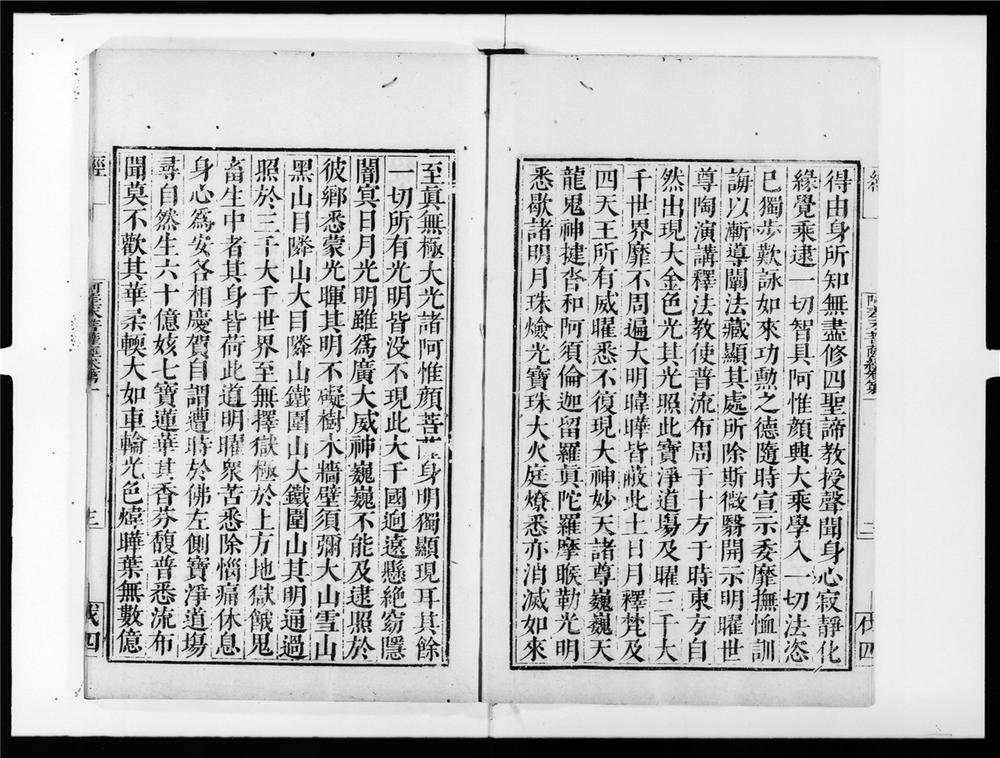 得由身所知無盡修四聖諦教授聲聞身心寂靜化
緣覺乘逮一切智具阿惟顏興大乘學入一切法恣
已獨步歎詠如來功勳之德隨時宣示委靡撫恤訓
誨以漸導闡法藏顯其處所除斯微翳開示明曜世
尊陶演講釋法教使普流布周于十方于時東方自
然出現大金色光其光照此寶淨道場及曜三千大
千世界靡不周遍大明暐曄皆蔽此土日月釋梵及
四天王所有威曜悉不復現大神妙天諸尊巍巍天
龍鬼神揵沓和阿須倫迦留羅真陀羅摩睺勒光明
悉歇諸明月珠燄光寶珠大火庭燎悉亦消滅如來
二
四
至真無極大光諸阿惟顏菩薩身明獨顯現耳其餘
一切所有光明皆没不現此大千國逈遠懸絶窈隱
闇冥日月光明雖爲廣大威神巍巍不能及逮照於
彼鄉悉蒙光暉其明不礙樹木牆壁須彌大山雪山
黑山目隣山大目隣山鐵圍山大鐵圍山其明通過
照於三千大千世界至無擇獄極於上方地獄餓鬼
畜生中者其身皆荷此道明曜衆苦悉除惱痛休息
身心爲安各相慶賀自謂遭時於佛左側寶淨道場
尋自然生六十億姟七寶蓮華其香芬馥普悉流布
聞莫不歡其華柔輭大如車輪光色煒曄葉無數億
經
三
四